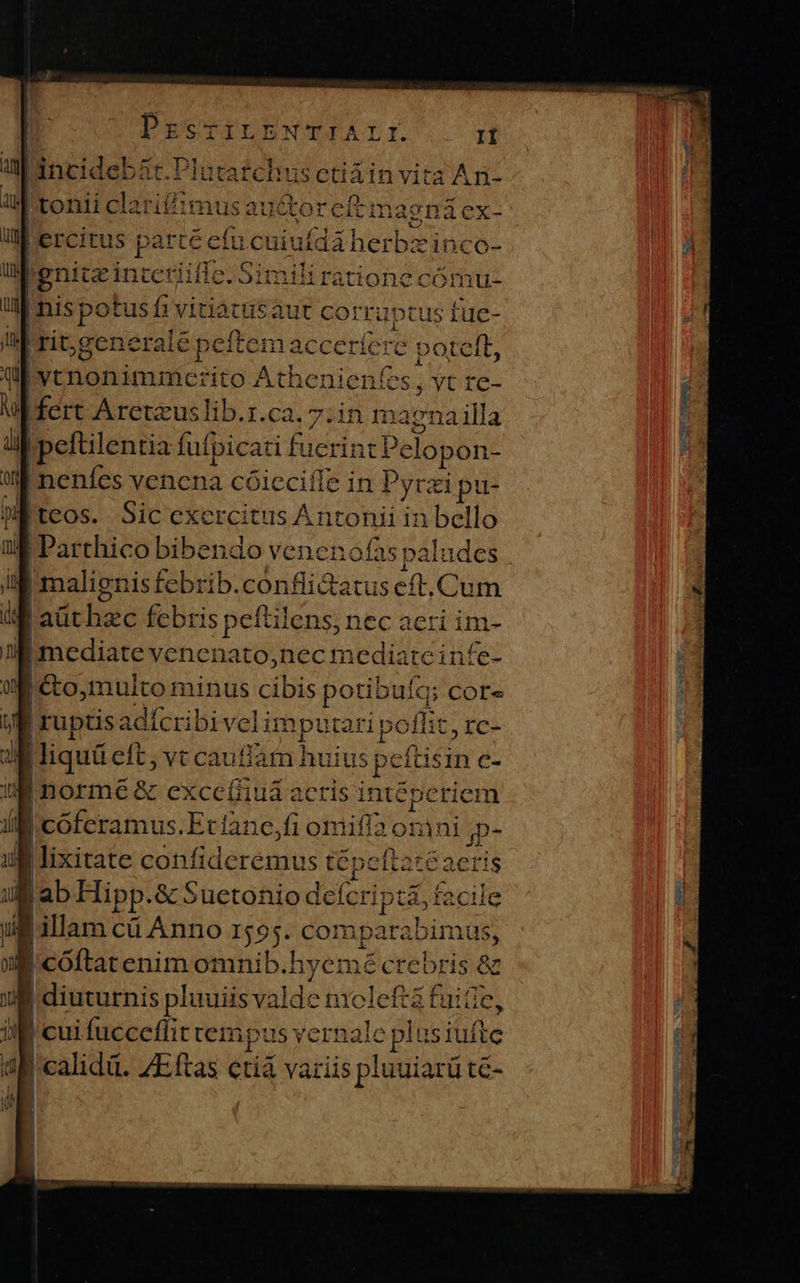 PESTILENTIALI. 11
incidebāt. Plutarchus etiā in vita An-
tonii clariſſimus auctor eſt magnā ex-
ercitus partē eſu cuiuſdā herbæ inco-
gnitæ interiiſſe. Simili ratione cōmu-
nis potus ſi vitiatus aut corruptus fue-
rit, generalē peſtem accerſere poteſt,
vt non immerito Athenienſes, vt re-
fert Aretæus lib.1.ca.7. in magna illa
peſtilentia ſuſpicati fuerint Pelopon-
nenſes venena cōieciſſe in Pyræi pu-
teos. Sic exercitus Antonii in bello
Parthico bibendo venenoſas paludes
malignis febrib. conflictatus eſt. Cum
aūt hæc febris peſtilens, nec aeri im-
mediate venenato, nec mediate infe-
cto, multo minus cibis potibuſq; cor-
ruptis adſcribi vel imputari poſſit, re-
liquū eſt, vt cauſſam huius peſtis in e-
normē & exceſſiuā aeris intēperiem
cōferamus. Et ſane, ſi omiſſa omni ꝓ-
lixitate conſideremus tēpeſtatē aeris
ab Hipp. & Suetonio deſcriptā, facile
illam cū Anno 1595. comparabimus,
cōſtat enim omnib. hyemē crebris &
diuturnis pluuiis valde moleſtā fuiſſe,
cui ſucceſſit tempus vernale plus iuſte
calidū. Æſtas etiā variis pluuiarū tē-